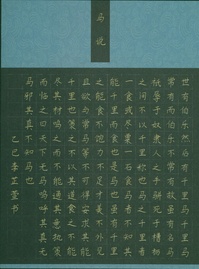 马说
世有伯乐然后有千里马千里马
常有而伯乐不常有故虽有名马
祇辱于奴隶人之手骈死于槽枥
之间不以千里称也马之千里者
一食或尽粟一石食马者不知其
能千里而食也是马也虽有千里
之能食不饱力不足才美不外见
且欲与常马等不可得安求其能
千里也策之不以其道食之不能
尽其材鸣之而不能通其意执策
而临之曰天下无马呜呼其真无
马邪其真不知马也
乙巳李芷萱书